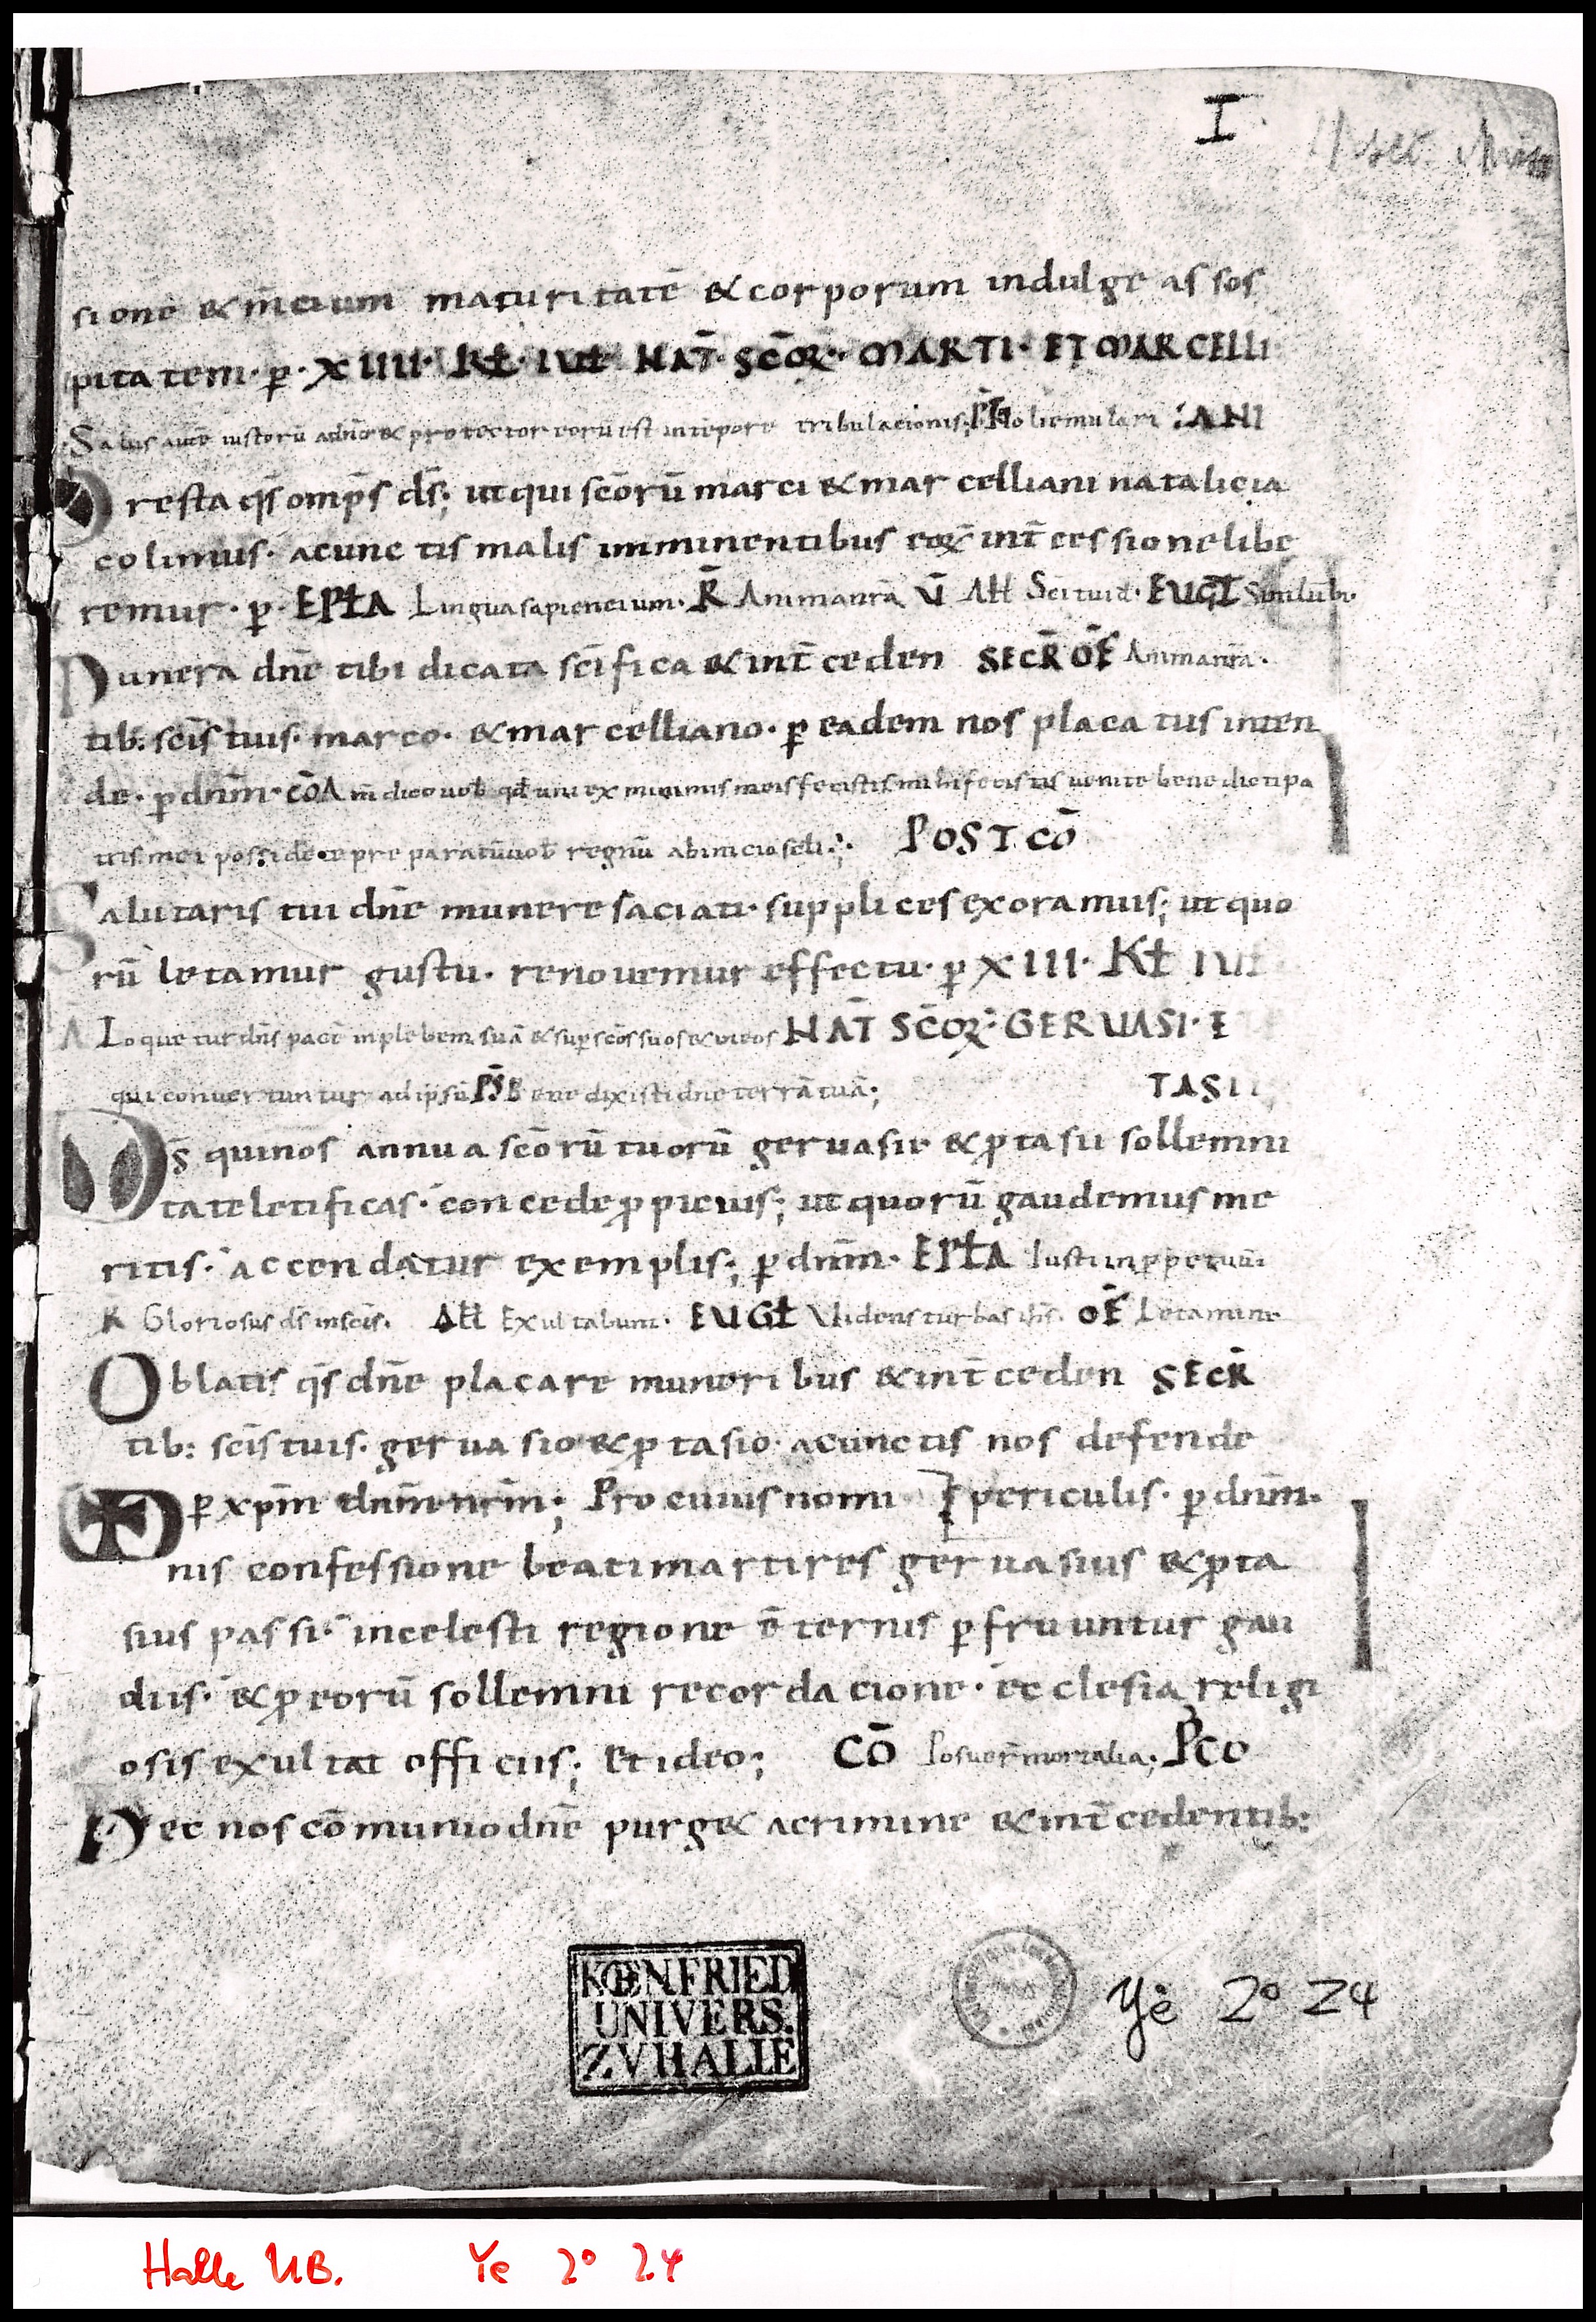 I
sione & m̄cium maturitatē & corporum indulgeas sos
pitatem· ꝑ· XIIII· KŁ· IUŁ· NAT̄· SCŌꝜ· MARTI· ET MARCELLI
Salus autē iustorū adn̄o & protector eorū est in tēpore tribulacionis; PS̄ Noli emulari :ANI
Presta qs̄ omp̄s ds̄; ut qui scōrū marci & marcelliani natalicia
colimus· acunctis malis imminentibus eoꝝ int̄cessione libe
remur· ꝑ· EPŁA Lingua sapiencium· R̄ Anima nr̄a V̄ AŁŁ Sc̄i tui d̄· EUGŁ
Munera dn̄e tibi dicata sc̄ifica & int̄ceden SECR̄ OF̄ Anima nr̄a·
tib: sc̄is tuis· marco· & marcelliano· ꝑ eadem nos placatus inten
de· ꝑ dnm̄· CŌA m̄ dico uob̄ qd̄ uni ex minimis meis fecistis mihi fecistis uenite benedicti pa
tris mei possidete preparatū uob̄ regnū ab inicio scl̄i· POST CŌ
Salutaris tui dn̄e munere saciati· supplices exoramus; ut quo
rū letamur gustu· renouemur effectu· ꝑ XIII· KŁ IUŁ
Loquetur dn̄s pacē in plebem suā & sup̄ scōs suos & in eos NAT̄ SCŌꝜ· GERUASI· E
qui conuertuntur ad ipsū PS̄ Benedixisti dn̄e terrā tuā; TASII
DS̄ qui nos annua scōrū tuorū geruasii & ꝓtasii sollemni
tate letificas· concede ꝓpicius; ut quorū gaudemus me
ritis· accendatur exemplis; ꝑ dnm̄· EPŁA Iusti in ꝑpetuū·
R Gloriosus ds̄ in sc̄is· AŁŁ Exultabunt· EUGŁ Uidens turbas ihs̄· OF̄ Letamini
Oblatis qs̄ dn̄e placare muneribus & int̄ceden SECR̄
tib: sc̄is tuis· geruasio & ꝓtasio· acunctis nos defende
ꝑ xpm̄ dnm̄ nrm̄; Pro cuius nomi periculis· ꝑ dnm̄·
nis confessione beati martires geruasius & ꝓta
sius passi· in celesti regione ēternis ꝑfruuntur gau
diis· & ꝓ eorū sollemni recordacione· ecclesia religi
osis exultat officiis; Et ideo; CŌ Posuer̄ mortalia; PCO
Hec nos cōmunio dn̄e purg& acrimine & int̄cedentib:
KŒNFRIED
UNIVERS.
ZVHALLE
Ye 2° 24
Halle UB. Ye 2° 24